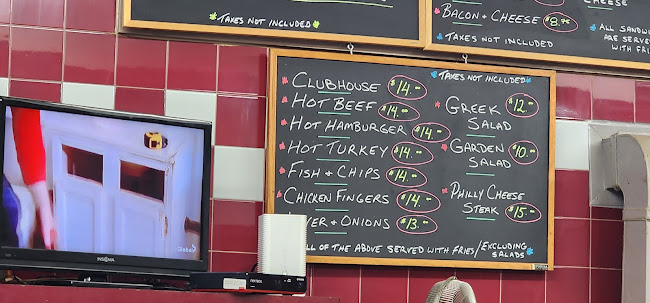 TAXES NOT INCLUDED
CHEESE
BACON + CHEESE $8.75
TAXES NOT INCLUDED
ALL SANDW
ARE SERVED
WITH FR
TAXES NOT INCLUDED
CLUBHOUSE $14.--
HOT BEEF $14.--
HOT HAMBURGER $14.--
HOT TURKEY $14.--
FISH + CHIPS $14.--
CHICKEN FINGERS $14.--
VER + ONIONS $13.--
GREEK $12.--
SALAD
GARDEN $10.--
SALAD
PHILLY CHEESE
STEAK $15.--
LL OF THE ABOVE SERVED WITH FRIES/EXCLUDING
SALADS
Global
INSIGNIA